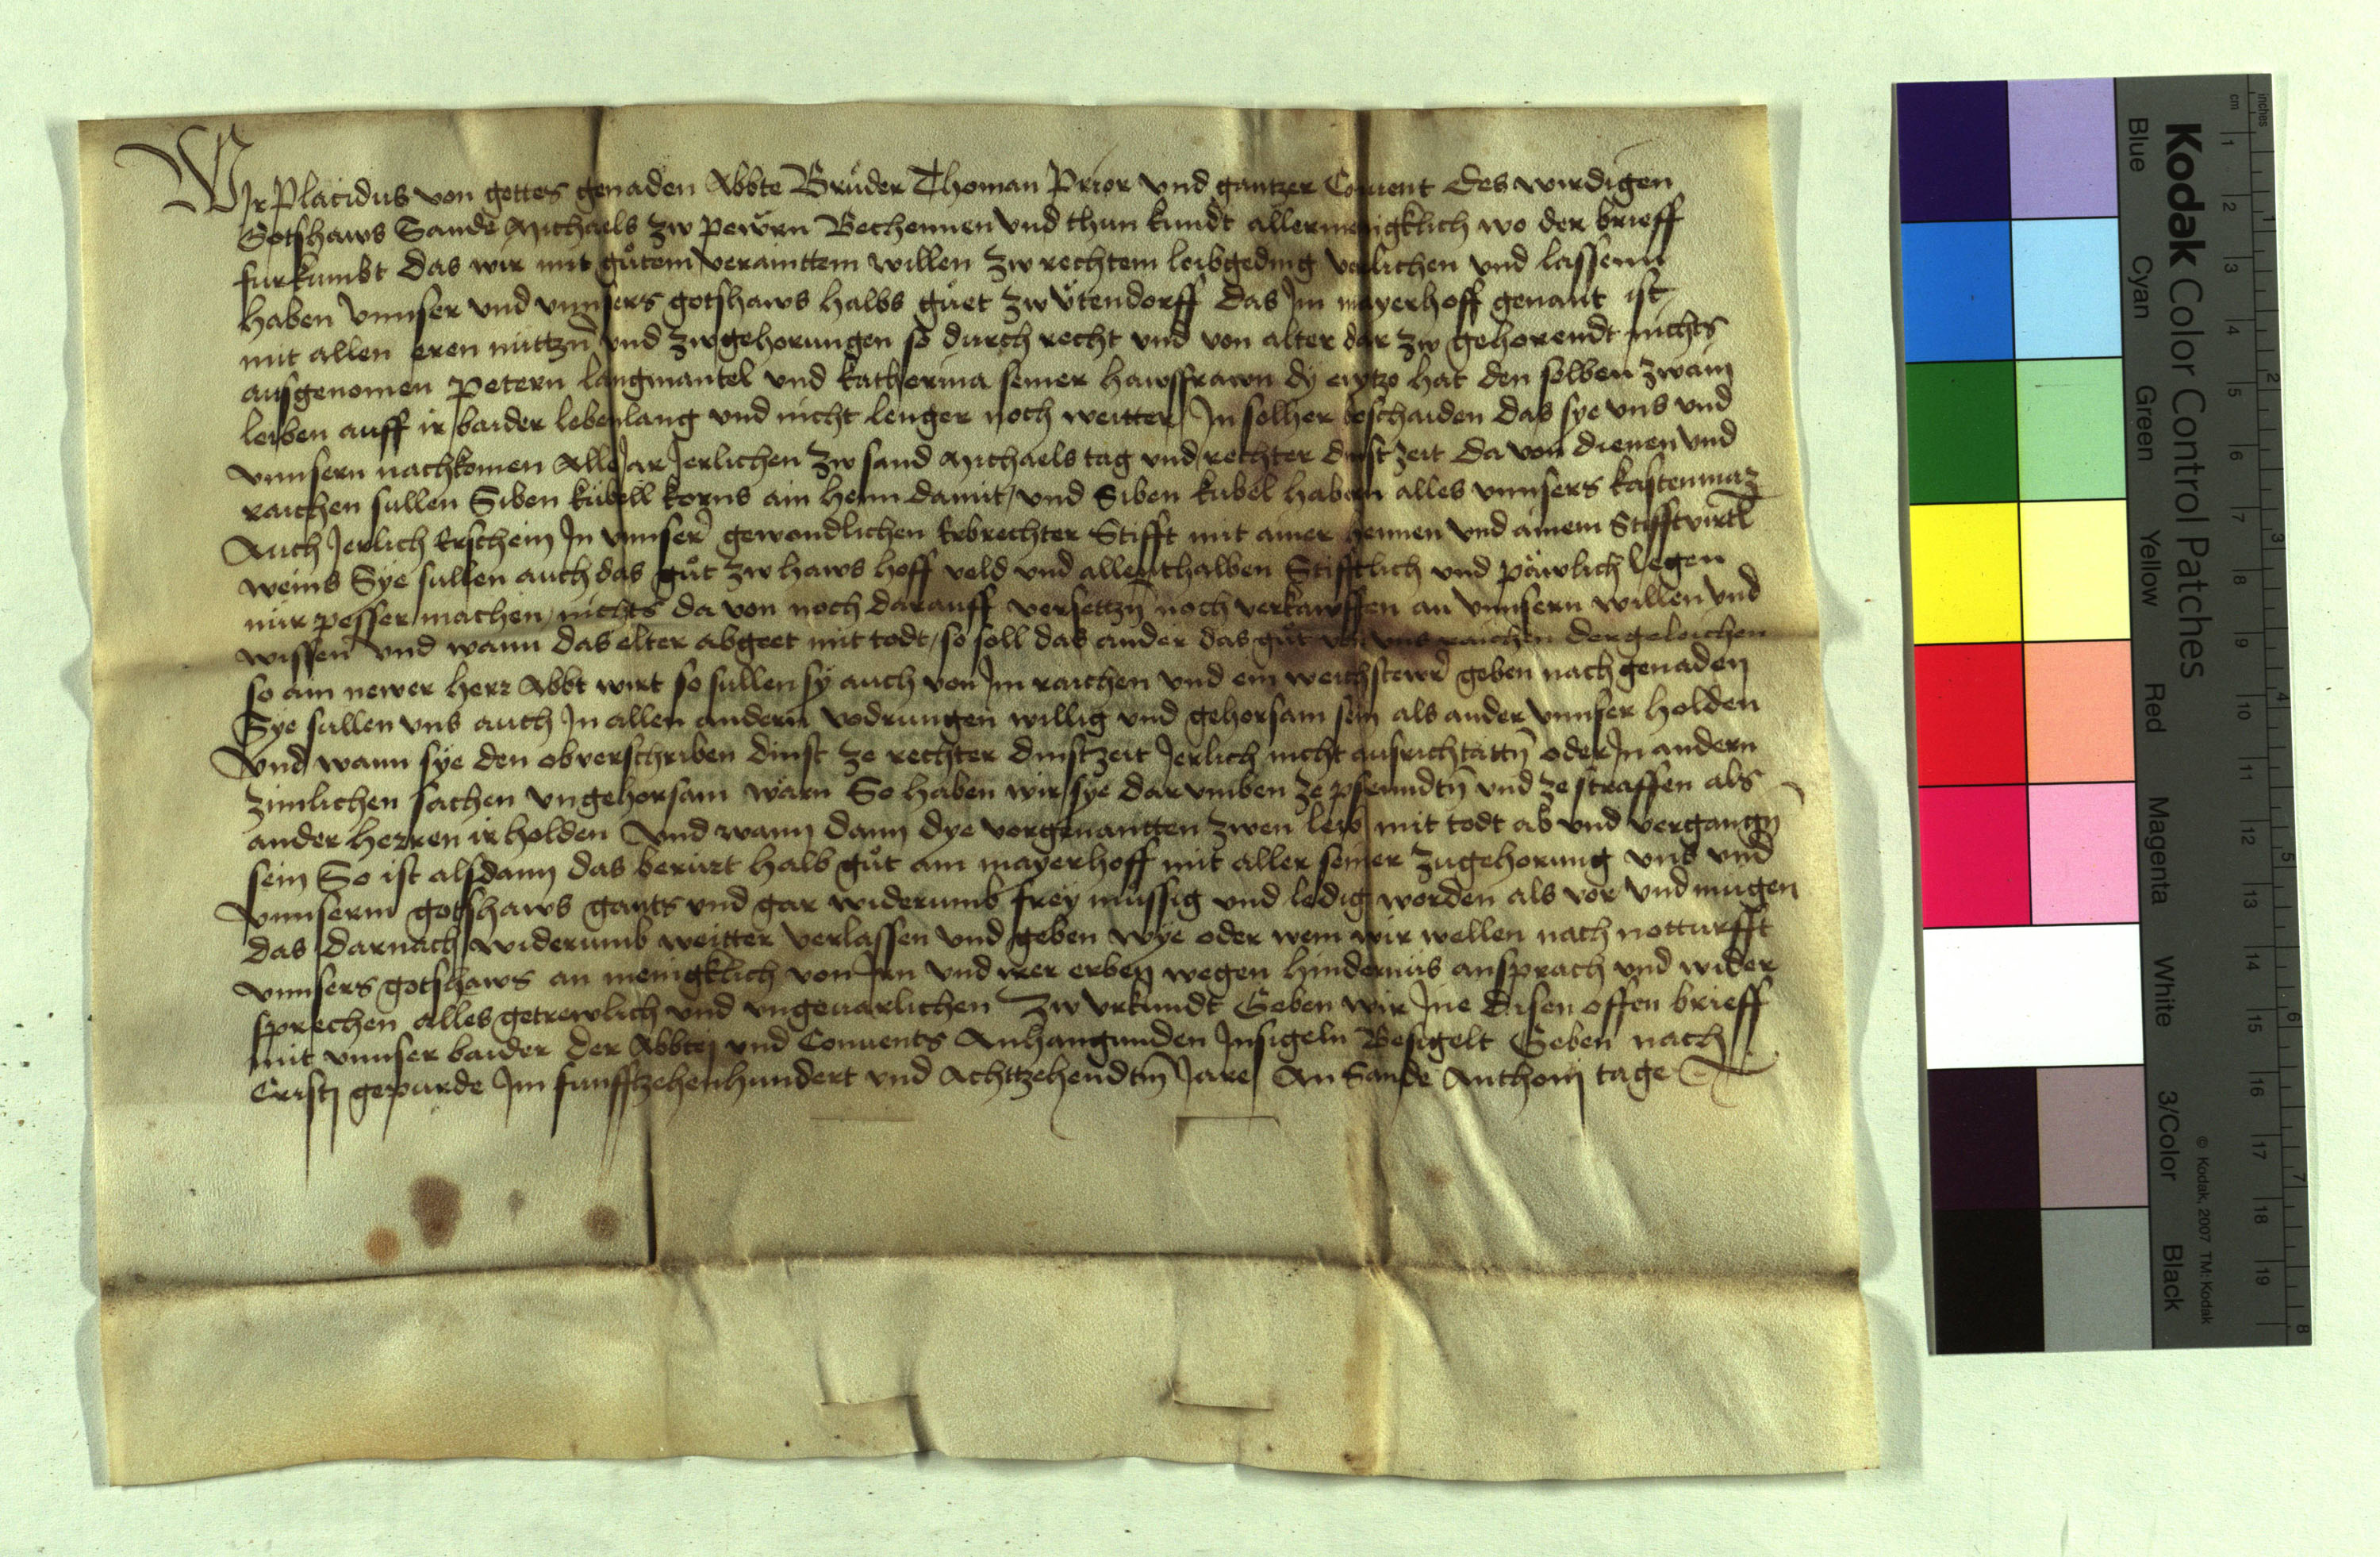 WIr Placidus von gottes genaden Abbte Brůder Thoman Prior vnd gantzer Conuent des wirdigen
Gotshaws Sande Michaels zw pewrn Bechennen vnd thun kundt allermenigklich wo der brieff
furkumbt das wir mit gůtem verainttem willen zw rechtem leibgeding verlichen vnd lassenn
haben vnnser vnd vnnsers gotshaws halbs gůet zw ůtendorff das Im mayerhoff genant ist
mit allen eren nutzn̄ vnd zwgehorungen so durch recht vnd von alter dar zw gehorendt nichts
ausgenomen Petern langmantel vnd katherina seiner hawsfrawn dy eÿtzo hat den selben zwain
leiben auff ir baider lebenlang vnd nicht lenger noch weitter In solher beschaiden das sye vns vnd
vnnsern nachkomen Alle Jar Jerlichen zw sand Michaels tag vnd rechter dinst zeit da von dienen vnd
raichen sullen Siben kubell korns ain henn damit / vnd Siben kubel habern alles vnnsers kastenmaz
Auch Jerlich Erschein In vnnser̄ gewondlichen Erbrechter Stifft mit ainer hennen vnd ainem Stifftvirtl
weins Sye sullen auch das gůt zw haws hoff veld vnd allenthalben Stifftlich vnd päwlich legen
nur pesser machen / nichts da von noch darauff versettzn̄ noch verkawffen an vnnsern willen vnd
wissen vnd wann das elter abgeet mit todt / so soll das ander das gůt von vns raichen dergeleichen
so ain newer herr Abbt wirt so sullen sy auch von Im raichen vnd ein weichstewr̄ geben nach genaden
Sye sullen vns auch In allen andern vodrungen willig vnd gehorsam sein als ander vnnser holden
Vnd wann sye den obverschriben dinst ze rechter dinstzeit Jerlich nicht ausrichtättn̄ oder In andern
zimlichen sachen vngehorsam wärn So haben wir sye dar vmben ze pfenndtn̄ vnd ze straffen als
ander herren ir holden Vnd wann dann dye vorgenantten zwen leib mit todt ab vnd vergangn̄
sein So ist alsdann das berürt halb gůt am mayerhoff mit aller seiner zugehorung vns vnd
vnnserm gotshaws gants vnd gar widerumb frey müssig vnd ledig worden als vor vnd mugen
das darnach widerumb weitter verlassen vnd geben wye oder wem wir wellen nach notturfft
vnnsers gotshaws an menigklich von Irn vnd irer erben wegen hindernüs ansprach vnd wider
sprechen alles getrewlich vnd vngeuarlichen Zw vrkundt Geben wir Ine disen offen brieff
mit vnnser baider der Abbtej vnd Conuents Anhangunden Insigeln Besigelt Geben nach
Cristj gepurde Im funfftzehenhundert vnd Achttzehendtn̄ Jare An Sande Anthonj tage
Kodak Color Control Patches
Blue Cyan Green Yellow Red Magenta White 3/Color Black
© Kodak, 2007 TM: Kodak
cm 1 2 3 4 5 6 7 8 9 10 11 12 13 14 15 16 17 18 19
inches 1 2 3 4 5 6 7 8